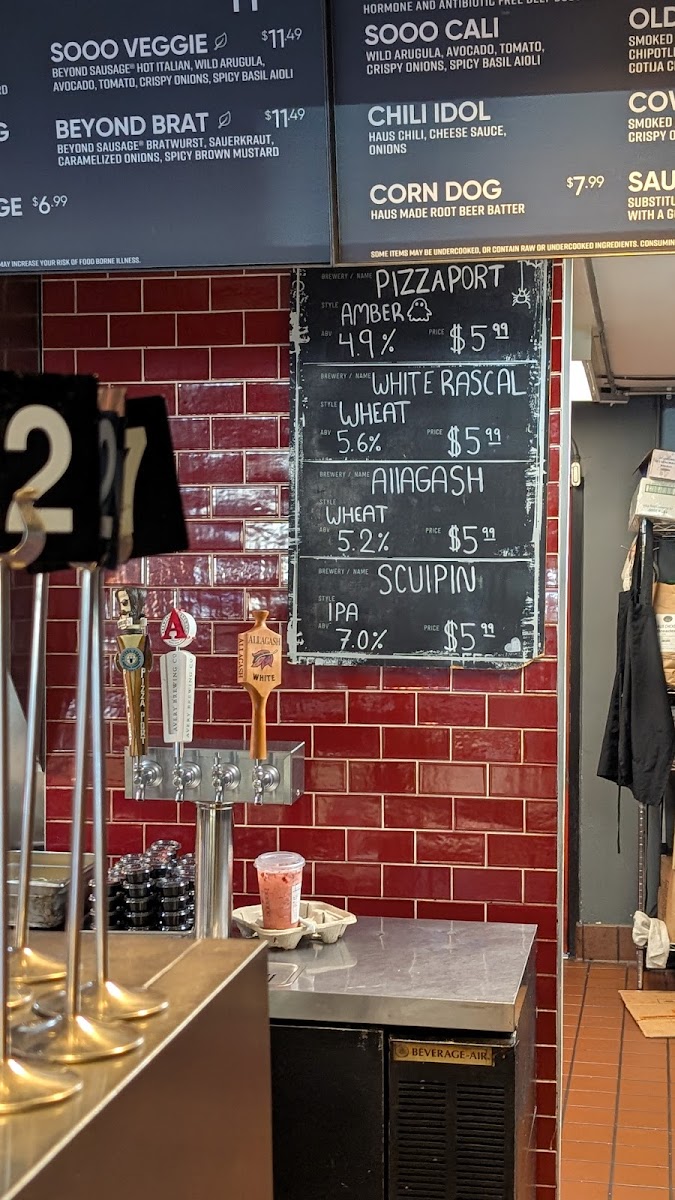 SOOO VEGGIE $11.49
BEYOND SAUSAGE® HOT ITALIAN, WILD ARUGULA,
AVOCADO, TOMATO, CRISPY ONIONS, SPICY BASIL AIOLI
BEYOND BRAT $11.49
BEYOND SAUSAGE® BRATWURST, SAUERKRAUT,
CARAMELIZED ONIONS, SPICY BROWN MUSTARD
GE $6.99
MAY INCREASE YOUR RISK OF FOOD BORNE ILLNESS.
HORMONE AND ANTIBIOTIC FREE BEEF
SOOO CALI
WILD ARUGULA, AVOCADO, TOMATO,
CRISPY ONIONS, SPICY BASIL AIOLI
CHILI IDOL
HAUS CHILI, CHEESE SAUCE,
ONIONS
CORN DOG $7.99
HAUS MADE ROOT BEER BATTER
SOME ITEMS MAY BE UNDERCOOKED, OR CONTAIN RAW OR UNDERCOOKED INGREDIENTS.
OLD
SMOKED
CHIPOTL
COTIJA C
COW
SMOKED
CRISPY O
SAU
SUBSTITU
WITH A G
BREWERY / NAME PIZZA PORT
STYLE AMBER
ABV 4.9% PRICE $5.99
BREWERY / NAME WHITE RASCAL
STYLE WHEAT
ABV 5.6% PRICE $5.99
BREWERY / NAME AllAGASH
STYLE WHEAT
ABV 5.2% PRICE $5.99
BREWERY / NAME SCUIPIN
STYLE IPA
ABV 7.0% PRICE $5.99
2
2
7
PIZZA PORT
A
AVERY BREWING CO
ALLAGASH
ALLAGASH
WHITE
BEVERAGE-AIR